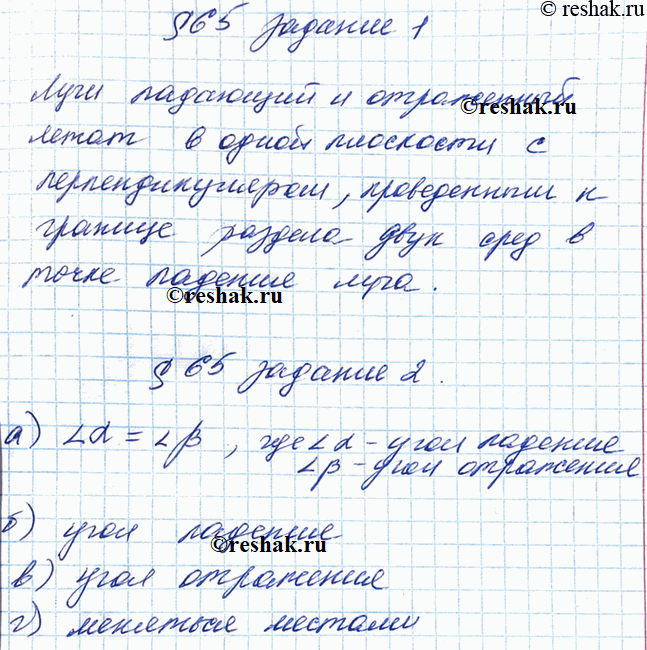 ©reshak.ru
§65 задание 1
Лучи падающий и отраженный
©reshak.ru
лежат в одной плоскости с
перпендикуляром, проведенным к
границе раздела двух сред в
точке падение луча.
©reshak.ru
§ 65 задание 2.
а) ∠α = ∠β, где ∠α - угол падение
∠β - угол отражение
б) угол падение
©reshak.ru
в) угол отражение
г) меняеться местами